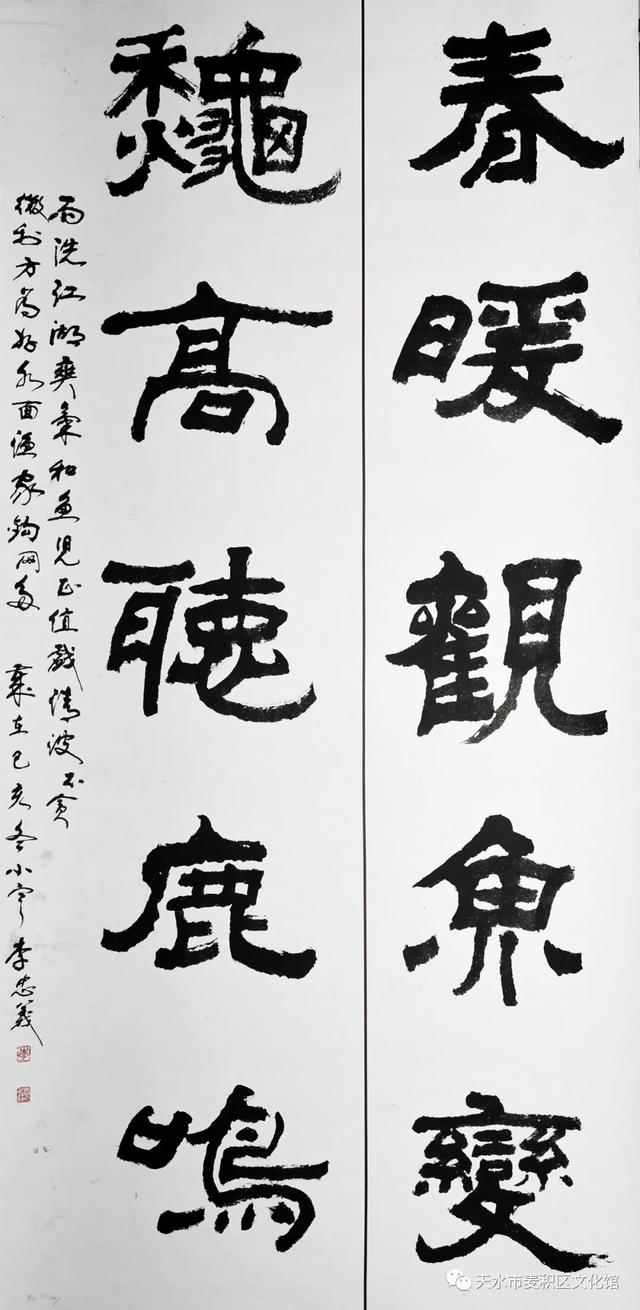 春暖觀魚變
龝高聽鹿鳴
雨洗江湖爽氣和魚兒正值戲清波不貪
微利方為好水面漁家鈎網多 歲在己亥冬 李忠義
天水市麦积区文化馆